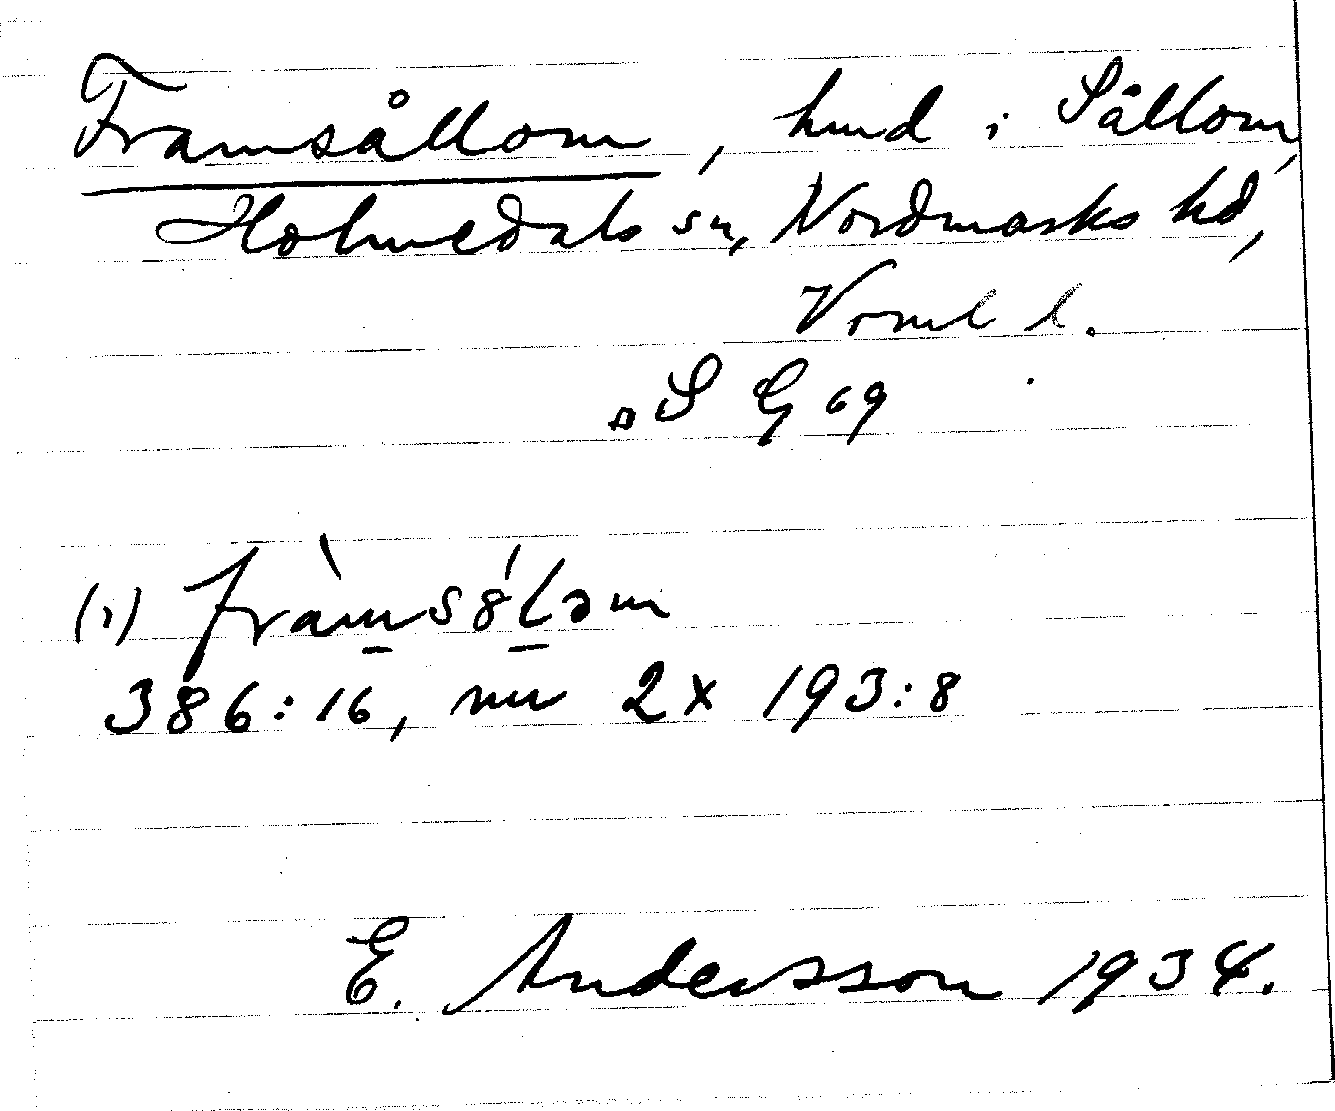 Framsållom, hmd i Sållom,
Holmedals sn, Nordmarks hd,
Vrml l.
S G 69
(i) fràmsólɔm
386:16, nu 2x 193:8
E. Andersson 1934.